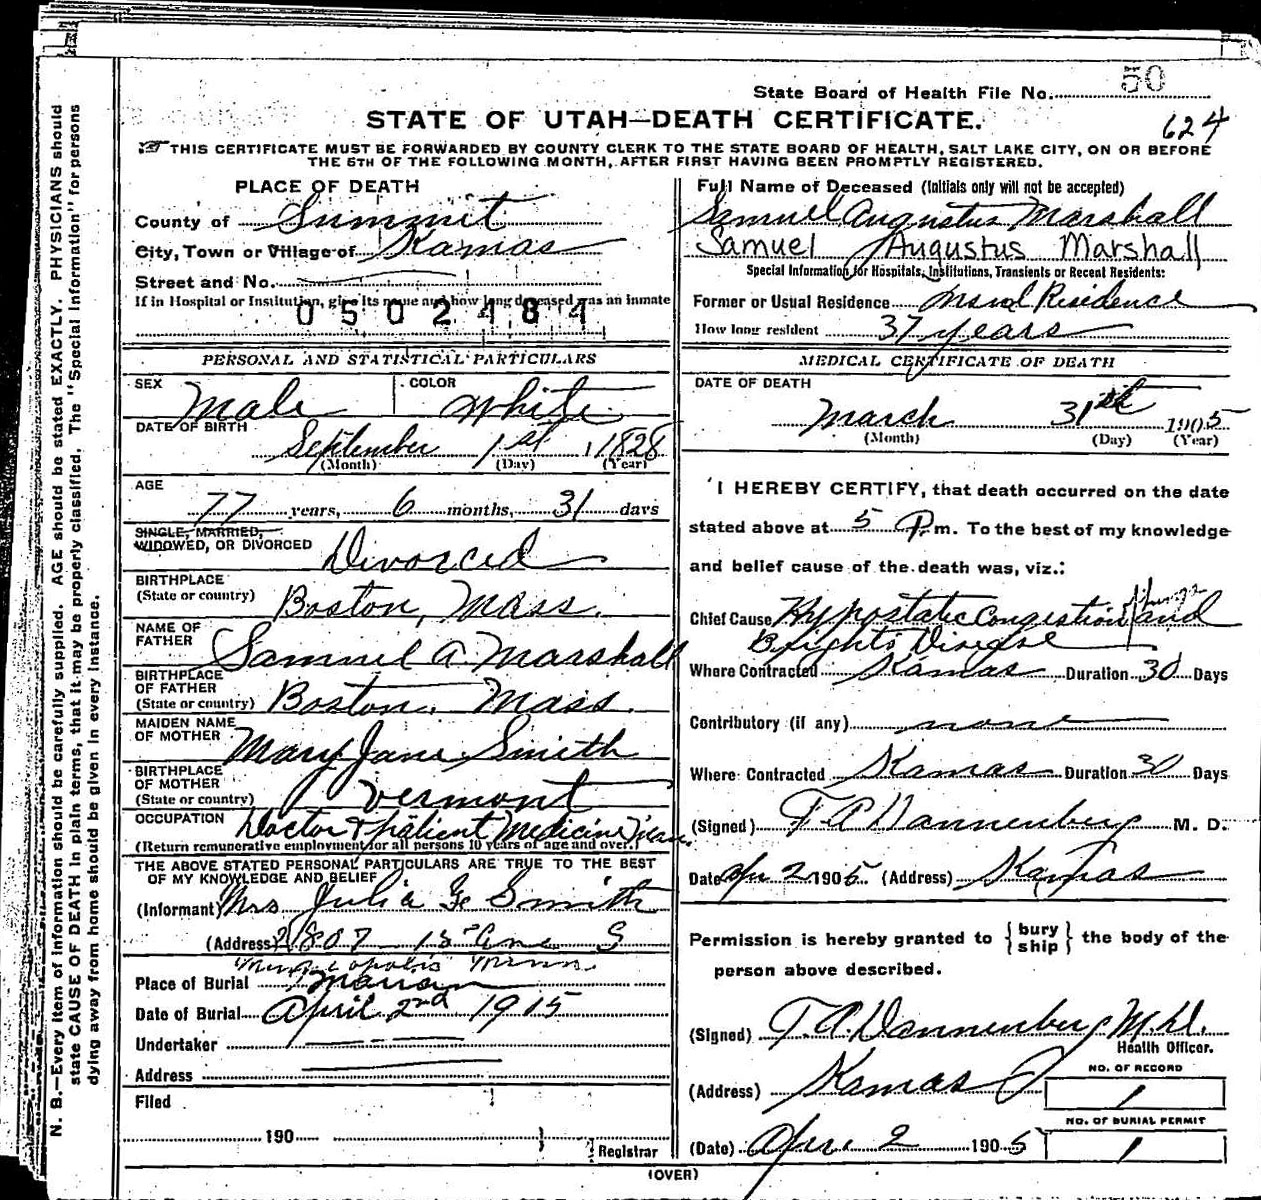 State Board of Health File No. 50
624
STATE OF UTAH—DEATH CERTIFICATE.
THIS CERTIFICATE MUST BE FORWARDED BY COUNTY CLERK TO THE STATE BOARD OF HEALTH, SALT LAKE CITY, ON OR BEFORE
THE 5TH OF THE FOLLOWING MONTH, AFTER FIRST HAVING BEEN PROMPTLY REGISTERED.
PLACE OF DEATH
County of Summit
City, Town or Village of Kamas
Street and No.
If in Hospital or Institution, give its name and how long deceased was an inmate
0502484
PERSONAL AND STATISTICAL PARTICULARS
SEX Male COLOR White
DATE OF BIRTH
September 1st 1828
(Month) (Day) (Year)
AGE
77 years, 6 months, 31 days
SINGLE, MARRIED,
WIDOWED, OR DIVORCED Divorced
BIRTHPLACE
(State or country) Boston, Mass.
NAME OF
FATHER Samuel A Marshall
BIRTHPLACE
OF FATHER
(State or country) Boston, Mass.
MAIDEN NAME
OF MOTHER Mary Jane Smith
BIRTHPLACE
OF MOTHER
(State or country) Vermont
OCCUPATION Doctor & patient Medicine
(Return remunerative employment for all persons 10 years of age and over.)
THE ABOVE STATED PERSONAL PARTICULARS ARE TRUE TO THE BEST
OF MY KNOWLEDGE AND BELIEF
(Informant) Mrs Julia G Smith
(Address) 2807 15 Ave S
Minneapolis Minn.
Place of Burial Marion
Date of Burial April 2nd 1915
Undertaker
Address
Filed
190
Registrar
(OVER)
Full Name of Deceased (Initials only will not be accepted)
Samuel Augustus Marshall
Samuel Augustus Marshall
Special Information for Hospitals, Institutions, Transients or Recent Residents:
Former or Usual Residence Usual Residence
How long resident 37 years
MEDICAL CERTIFICATE OF DEATH
DATE OF DEATH
March 31th 1905
(Month) (Day) (Year)
I HEREBY CERTIFY, that death occurred on the date
stated above at 5 P.m. To the best of my knowledge
and belief cause of the death was, viz.:
Chief Cause Hypostatic Congestion lungs and
Brights Disease
Where Contracted Kamas Duration 30 Days
Contributory (if any) none
Where Contracted Kamas Duration 30 Days
(Signed) T A Dannenberg M. D.
Date Apr 2 1905 (Address) Kamas
Permission is hereby granted to { bury ship } the body of the
person above described.
(Signed) T. A. Dannenberg M.D.
Health Officer.
(Address) Kamas
NO. OF RECORD
1
NO. OF BURIAL PERMIT
1
(Date) Apr 2 1905
N. B.—Every item of information should be carefully supplied. AGE should be stated EXACTLY. PHYSICIANS should
state CAUSE OF DEATH in plain terms, that it may be properly classified. The "Special Information" for persons
dying away from home should be given in every instance.